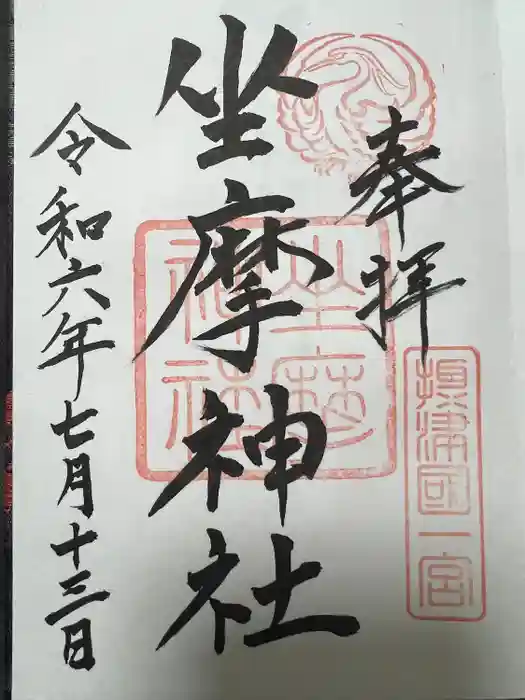 奉拝
摂津國一宮
坐摩神社
坐摩
神社
令和六年七月十三日